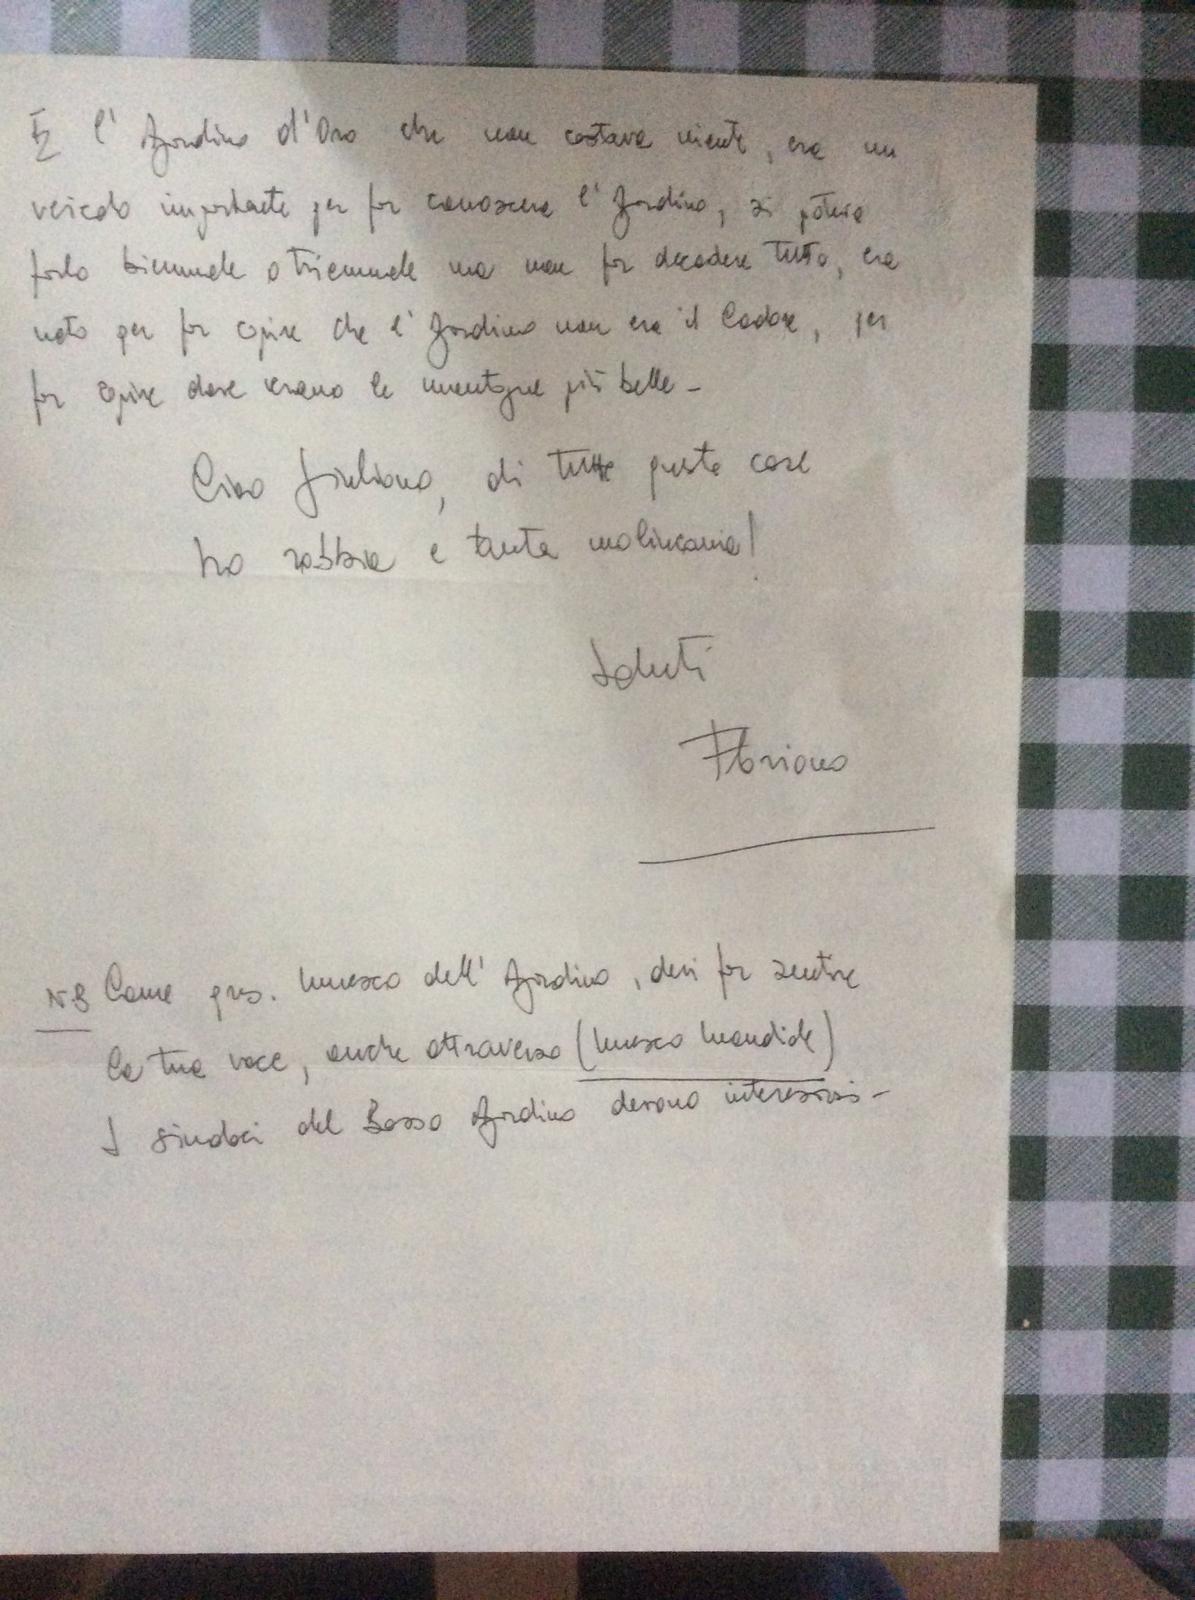 E l'Agordino d'Oro che non costava niente, era un
veicolo importante per far conoscere l'Agordino, si poteva
farlo biennale o triennale ma non far decadere tutto, era
nato per far capire che l'Agordino non era il Cadore, per
far capire dove erano le montagne più belle -
Ciao Giuliano, di tutte queste cose
ho rabbia e tanta malincania!
Saluti
Floriano
NB Come pres. Unesco dell'Agordino, devi far sentire
la tua voce, anche attraverso (Unesco Mondiale)
I sindaci del Basso Agordino devono interessarsi -